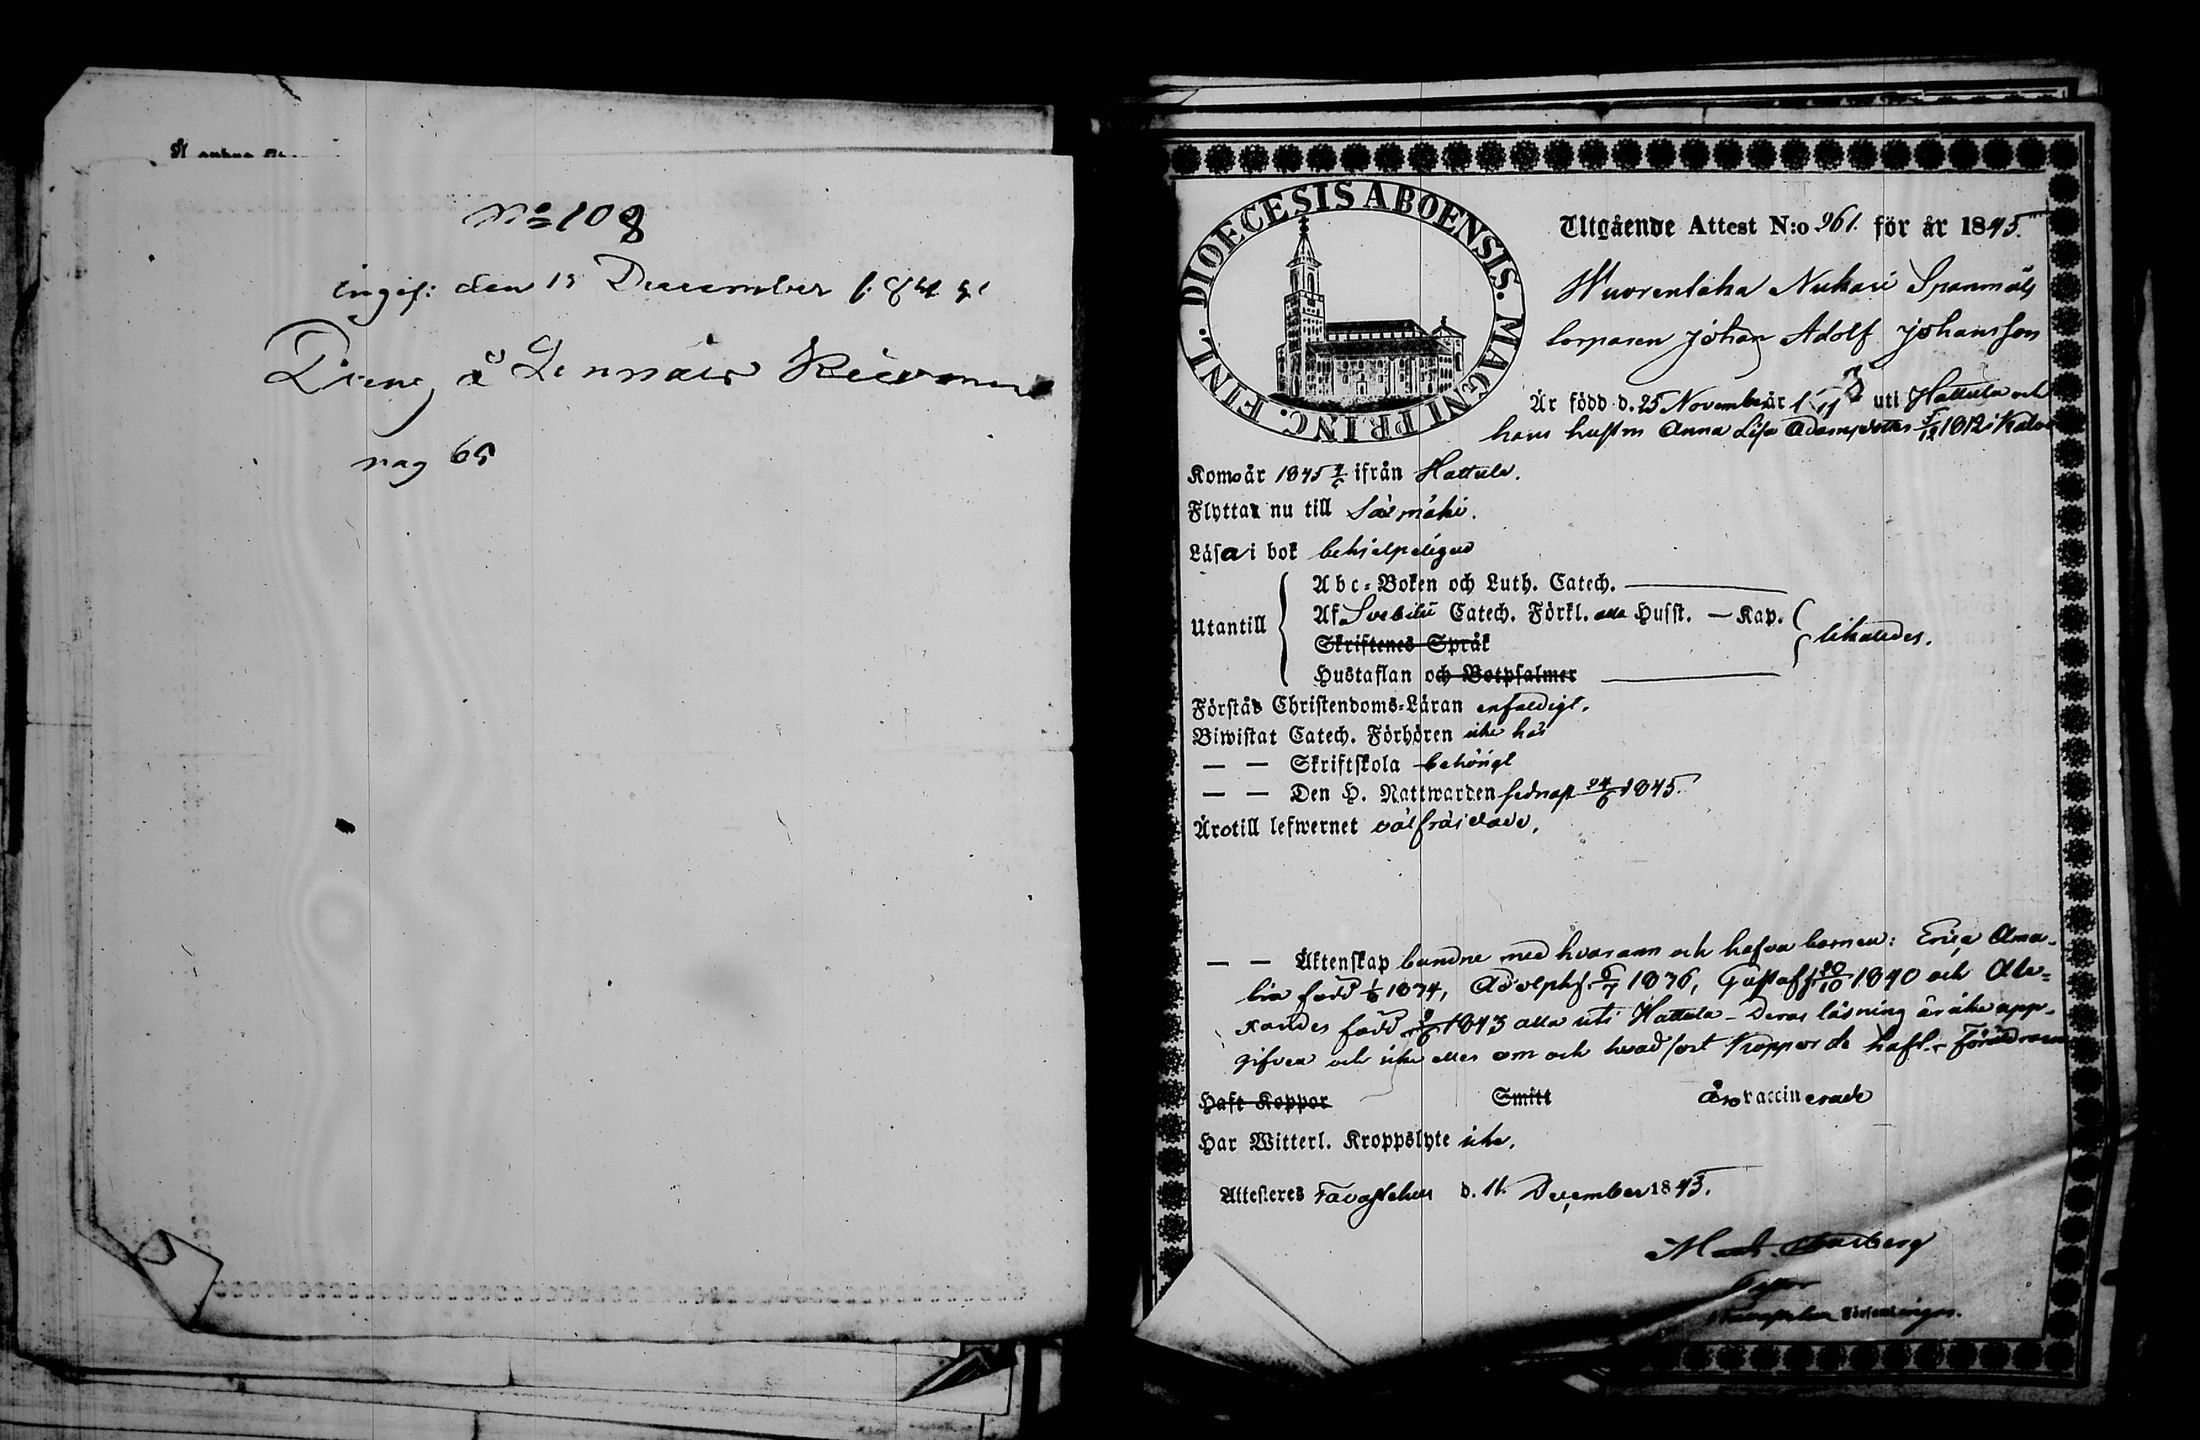 No 108
ingif: den 15 December 1845
Dreng å
pag 65
DIOECESIS ABOENSIS. MAGNI PRINC. FINL.
Utgående Attest N:o 261. för år 1845.
Wuorentaka Nukari Spanmåls
torparen Johan Adolf Johansson
Är född d. 25 November år uti Hattula och
hans hustru Anna Lisa Adamsdotter 1812 i
Komo år 1845 ifrån Hattula.
Flyttar nu till Säxmäki.
Läsa i bok behjelpeligen
Abc-Boken och Luth. Catech.
Utantill Af Svebilii Catech. Förkl. alla Husst. — Kap. likaledes.
Skriftenes Språk
Hustaflan och Botpsalmer
Förstå Christendoms-Läran enfaldigt.
Biwistat Catech. Förhören icke här
— — Skriftskola behörigt
— — Den H. Nattwarden sednast 24/6 1845.
Äro till lefwernet välfräjdade.
— — Äktenskap bundne med hvarann och hafva barnen: Erica Ama-
lia född 1834, Adolph f. 1836, Gustaf f. 20/10 1840 och Ale-
xander född 1843 alla uti Hattula - Deras läsning är icke upp-
gifven och icke eller om och hvad sort Koppor de haft. - Föräldrarne
Haft Koppor Smitt Äro vaccinerade
Har Witterl. Kroppslyte icke.
Attesteres Tavastehus d. 11. December 1845.